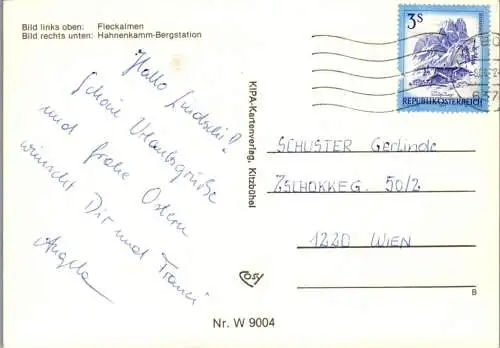 Bild links oben: Fleckalmen
Bild rechts unten: Hahnenkamm-Bergstation
Hallo Lindschi!
Schöne Urlaubsgrüße
und frohe Ostern
wünscht Dir und Franci
Angela
KIPA-Kartenverlag, Kitzbühel
3S
REPUBLIK ÖSTERREICH
SCHUSTER Gerlinde
ZSCHOKKEG. 50/2
1220 WIEN
COSY
B
Nr. W 9004